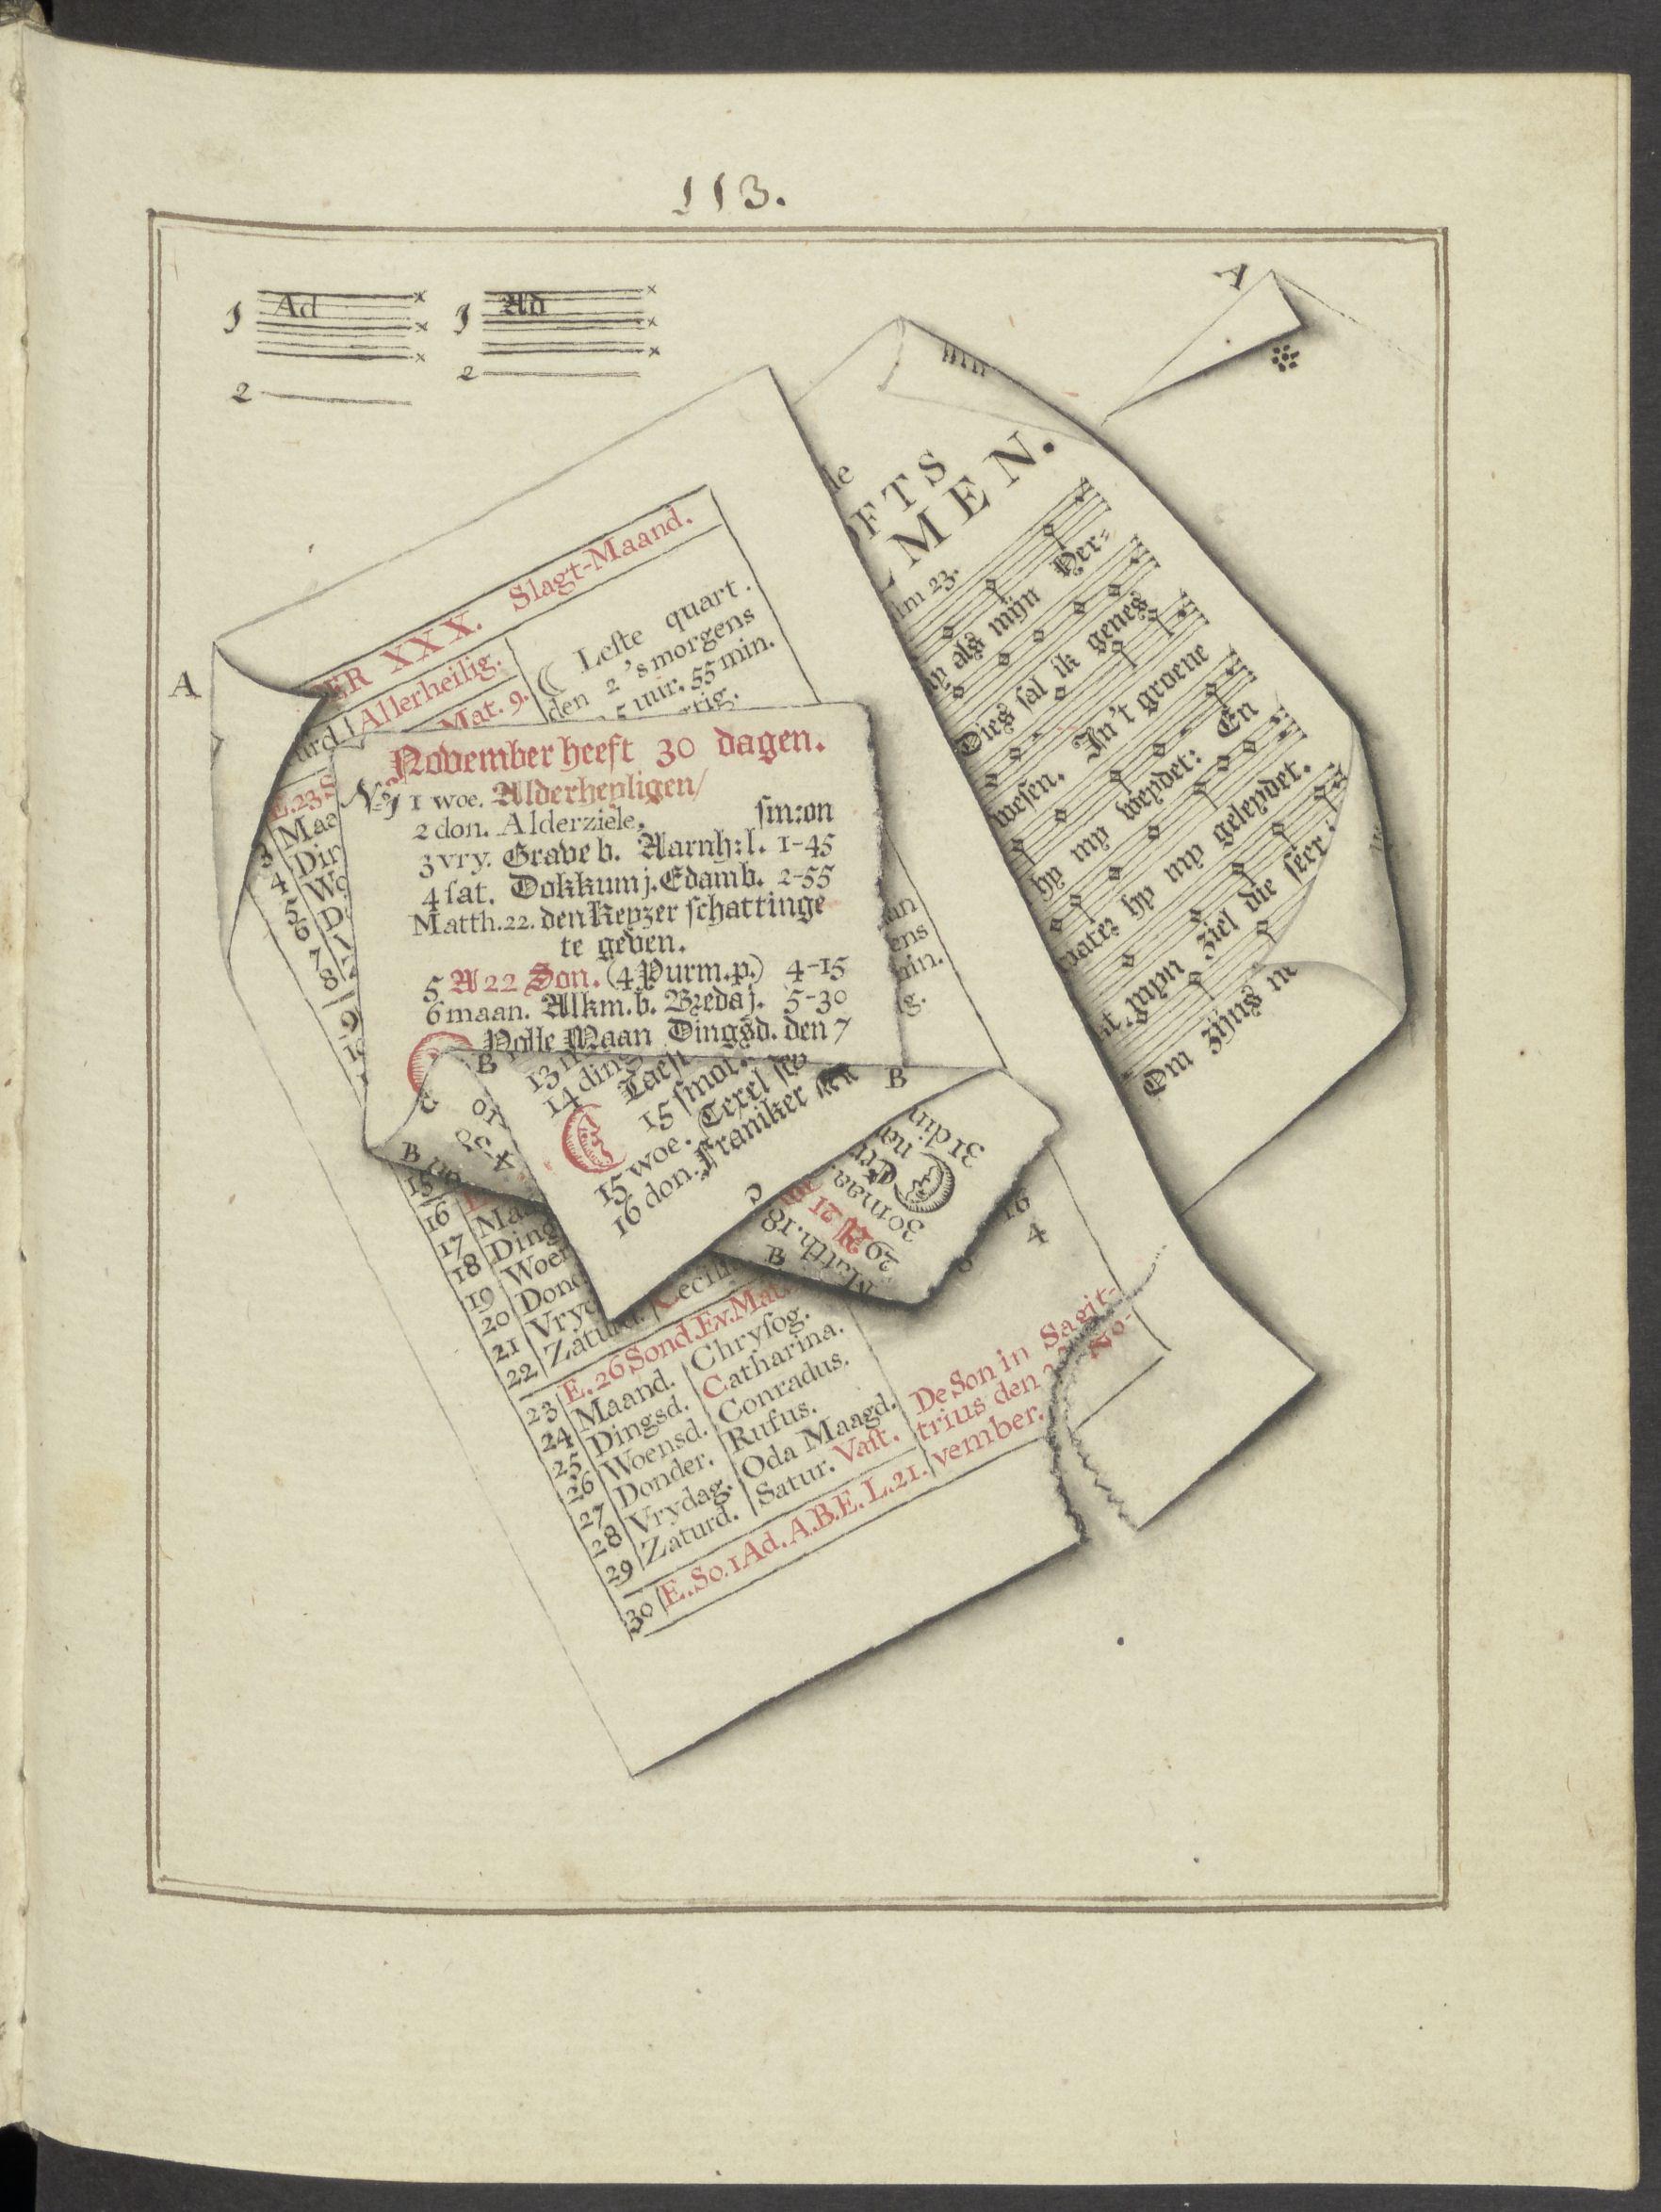 113.
1 Ad
2
1 Ad
2
A
A
ER XXX. Slagt-Maand.
urd. Allerheilig.
Mat. 9.
☾ Leſte quart.
den 2 's morgens
5 uur. 55 min.
rtig.
E. 23 S
3 Maa
4 Din
5 Wo
6 D
7
8
9
10
November heeft 30 dagen.
1 woe. Alderheyligen/
2 don. Alderziele. ſm:on
3 vry. Grave b. Aarnh:l. 1-45
4 ſat. Dokkum j. Edam b. 2-55
Matth. 22. den Keyzer ſchattinge
te geven.
5 A 22 Son. (4 Purm.p.) 4-15
6 maan. Alkm. b. Breda j. 5-30
Volle Maan Dingsd. den 7
an
ens
min.
g.
B
B
C
10
4-30
B
13
14 ding
Laeſt
15 ſmor.
15 woe. Texel
16 don. Franiker
C
31 din
na
30 maa.
29 A 21
Matth. 18.
B
15
16
17 Maa
18 Ding
19 Woen
20 Dond
21 Vryd
22 Zaturd. Cecili
E. 26 Sond. Ev. Mat.
23 Maand. Chryſog.
24 Dingsd. Catharina.
25 Woensd. Conradus.
26 Donder. Rufus.
27 Vrydag. Oda Maagd.
28 Zaturd. Satur. Vaſt.
29
30 E. So. 1 Ad. A. B. E. L. 21.
16
4
De Son in Sagit-
trius den 22 No-
vember.
le
OFTS
LMEN.
lm 23.
als mijn Her-
Dies ſal ik genes
weſen. In 't groene
hy my weydet: En
waater hy my geleydet.
mijn ziel die ſeer
Om zijns n